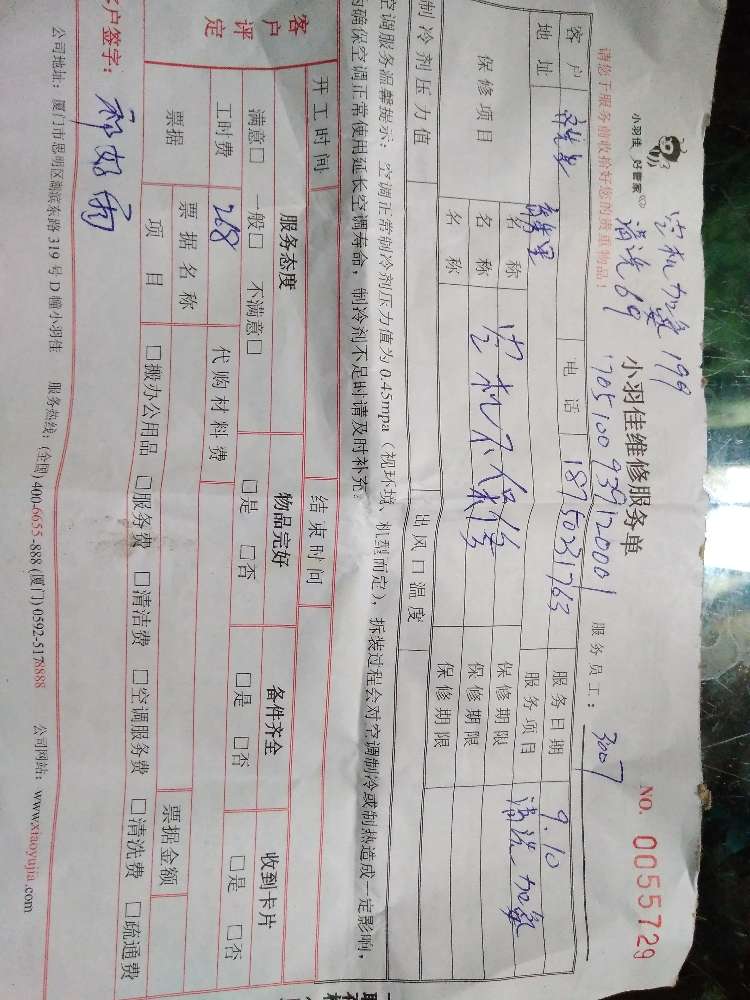 小羽佳 好管家
空机加氨 199
清洗 69
170510093912000 1
请您于服务前收拾好您的贵重物品!
小羽佳维修服务单
服务员工: 3007
NO. 0055729
客户
电话 18750231763
服务日期 9.10
地址
服务项目 清洗、加氨
保修项目
名称 空机不保修
保修期限
名称
保修期限
名称
保修期限
制冷剂压力值
出风口温度
空调服务温馨提示: 空调正常制冷剂压力值为0.45mpa(视环境、机型而定), 拆装过程会对空调制冷或制热造成一定影响,
为确保空调正常使用延长空调寿命, 制冷剂不足时请及时补充。
开工时间
结束时间
客户评定
服务态度
物品完好
备件齐全
收到卡片
满意□ 一般□ 不满意□
□是 □否
□是 □否
□是 □否
工时费 268
代购材料费
票据
票据名称
票据金额
项目
□搬办公用品 □服务费 □清洁费 □空调服务费 □清洗费 □疏通费
客户签字:
公司地址: 厦门市思明区湖滨东路319号D幢小羽佳 服务热线: (全国) 400-6655-888 (厦门) 0592-5178888 公司网站: www.xiaoyujia.com